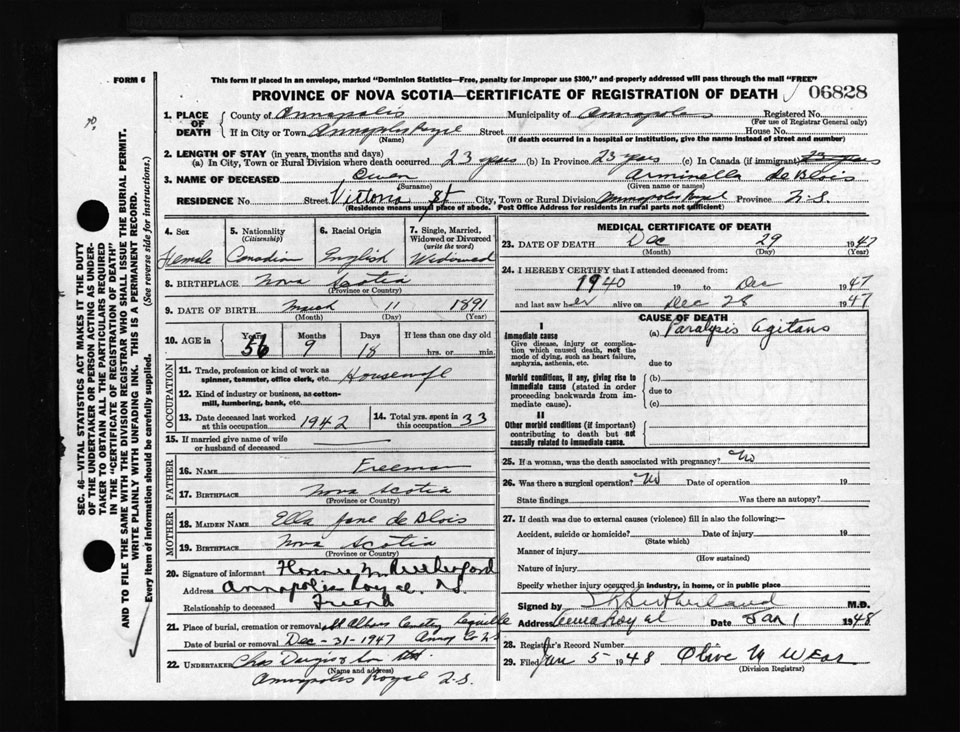 FORM 6
This form if placed in an envelope, marked "Dominion Statistics—Free, penalty for improper use $300," and properly addressed will pass through the mail "FREE"
PROVINCE OF NOVA SCOTIA—CERTIFICATE OF REGISTRATION OF DEATH 06828
SEC. 46—VITAL STATISTICS ACT MAKES IT THE DUTY
OF THE UNDERTAKER OR PERSON ACTING AS UNDER-
TAKER TO OBTAIN ALL THE PARTICULARS REQUIRED
IN THE "CERTIFICATE OF REGISTRATION OF DEATH"
AND TO FILE THE SAME WITH THE DIVISION REGISTRAR WHO SHALL ISSUE THE BURIAL PERMIT.
WRITE PLAINLY WITH UNFADING INK. THIS IS A PERMANENT RECORD.
Every item of information should be carefully supplied. (See reverse side for instructions.)
1. PLACE OF DEATH County of Annapolis Municipality of Annapolis Registered No.
(For use of Registrar General only)
If in City or Town Annapolis Royal Street House No.
(Name) (If death occurred in a hospital or institution, give the name instead of street and number)
2. LENGTH OF STAY (in years, months and days)
(a) In City, Town or Rural Division where death occurred 23 years (b) In Province 23 years (c) In Canada (if immigrant) 23 years
3. NAME OF DECEASED Owen Arminella deBlois
(Surname) (Given name or names)
RESIDENCE No. Street Victoria St City, Town or Rural Division Annapolis Royal Province N.S.
(Residence means usual place of abode. Post Office Address for residents in rural parts not sufficient)
4. Sex
Female
5. Nationality
(Citizenship)
Canadian
6. Racial Origin
English
7. Single, Married, Widowed or Divorced
(write the word)
Widowed
8. BIRTHPLACE Nova Scotia
(Province or Country)
9. DATE OF BIRTH March 11 1891
(Month) (Day) (Year)
10. AGE in Years Months Days If less than one day old
56 9 18 hrs. or min.
OCCUPATION
11. Trade, profession or kind of work as
spinner, teamster, office clerk, etc. Housewife
12. Kind of industry or business, as cotton-
mill, lumbering, bank, etc.
13. Date deceased last worked
at this occupation 1942
14. Total yrs. spent in
this occupation 33
15. If married give name of wife
or husband of deceased
FATHER
16. NAME Freeman
17. BIRTHPLACE Nova Scotia
(Province or Country)
MOTHER
18. MAIDEN NAME Ella Jane de Blois
19. BIRTHPLACE Nova Scotia
(Province or Country)
20. Signature of informant Florence M Rutherford
Address Annapolis Royal. N.S.
Relationship to deceased Friend
21. Place of burial, cremation or removal Cemetery Lequille
Date of burial or removal Dec - 31 - 1947 Anna Co N.S
22. UNDERTAKER Chas Dargie & Son Ltd
(Name and address)
Annapolis Royal N.S.
MEDICAL CERTIFICATE OF DEATH
23. DATE OF DEATH Dec 29 1947
(Month) (Day) (Year)
24. I HEREBY CERTIFY that I attended deceased from:
1940 19 to Dec 1947
and last saw her alive on Dec 28 1947
CAUSE OF DEATH
I
Immediate cause (a) Paralysis Agitans
Give disease, injury or complica-
tion which caused death, not the
mode of dying, such as heart failure,
asphyxia, asthenia, etc. due to
Morbid conditions, if any, giving rise to (b)
immediate cause (stated in order due to
proceeding backwards from im-
mediate cause). (c)
II
Other morbid conditions (if important)
contributing to death but not
causally related to immediate cause.
25. If a woman, was the death associated with pregnancy? No
26. Was there a surgical operation? No Date of operation 19
State findings Was there an autopsy?
27. If death was due to external causes (violence) fill in also the following:—
Accident, suicide or homicide? Date of injury 19
(State which)
Manner of injury
(How sustained)
Nature of injury
Specify whether injury occurred in industry, in home, or in public place
Signed by Sutherland M.D.
Address Anna Royal Date Jan 1 1948
28. Registrar's Record Number
29. Filed Jan 5 1948 Olive M Wear
(Division Registrar)